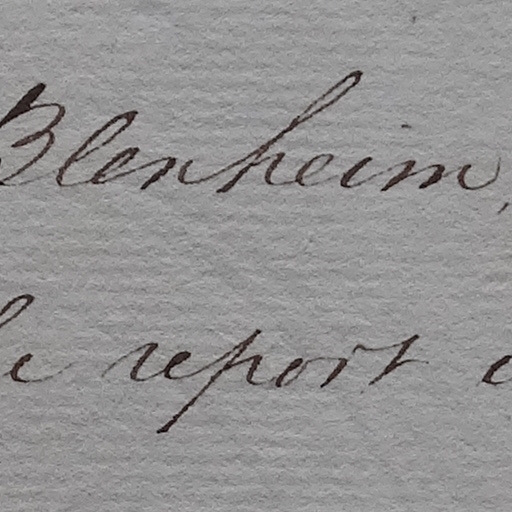 Blenheim,
report